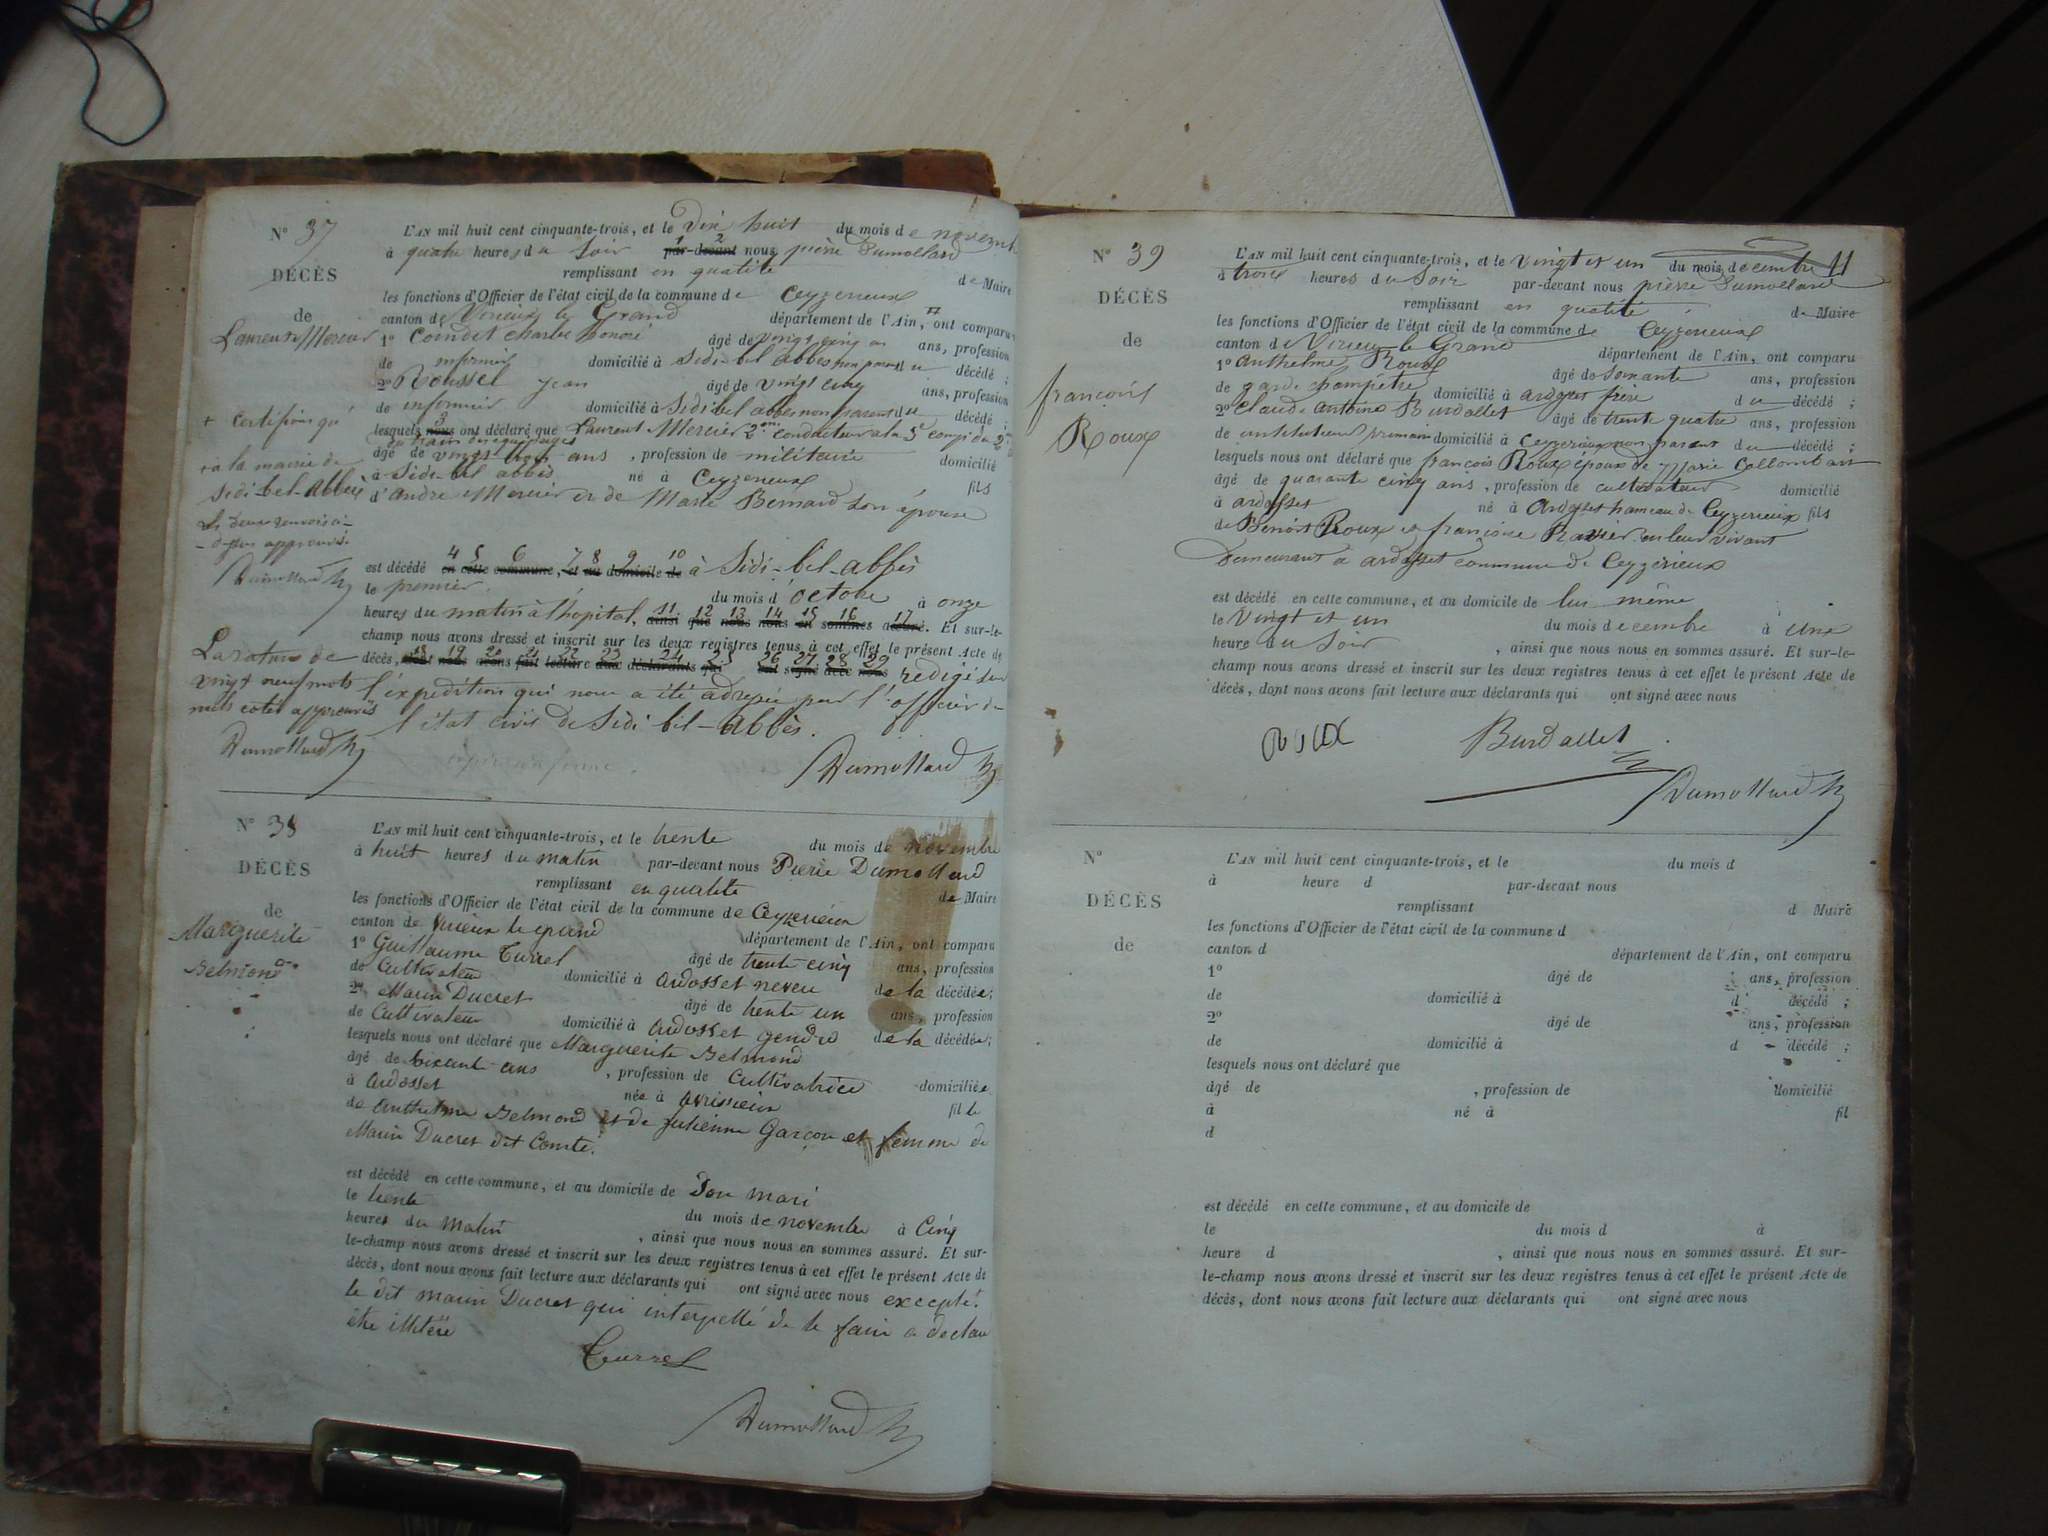 N° 37
DÉCÈS
de
Laurent Mercier
L'AN mil huit cent cinquante-trois, et le Dix huit du mois de novemb
à quatre heures du Soir par-devant nous pierre Dumollard
remplissant en qualité de Maire
les fonctions d'Officier de l'état civil de la commune de Ceyzerieux
canton de Virieux le Grand département de l'Ain, ont comparu
1° Combet Charles honoré âgé de vingt cinq ans, profession
de infirmier domicilié à Sidi-bel abbès non parent du décédé ;
2° Roussel Jean âgé de vingt cinq ans, profession
de infirmier domicilié à Sidi bel abbès non parent du décédé ;
+ certifions qu'
lesquels nous ont déclaré que Laurent Mercier 2eme conducteur a la 5e compie du 2me
du train des équipages
âgé de vingt trois ans , profession de militaire domicilié
à Sidi-bel abbès né à Ceyzerieux fils
d'andré Mercier et de Marie Bernard son épouse
+ à la mairie de
Sidi-bel-Abbès
les deux renvois ci-
-dessus approuvés
Dumollard
est décédé en cette commune, et au domicile de à Sidi-bel-abbès
le premier du mois d'octobre à onze
heures du matin à l'hopital, ainsi que nous nous en sommes assuré. Et sur-le-
champ nous avons dressé et inscrit sur les deux registres tenus à cet effet le présent Acte de
décès, dont nous avons fait lecture aux déclarants qui ont signé avec nous redigé sur
l'expedition qui nous a été adressée par l'officier de
l'état civil de Sidi bel-abbès.
La rature de
vingt neuf mots
nuls cotés approuvés
Dumollard
Dumollard
N° 38
DÉCÈS
de
Marguerite
Belmond
L'AN mil huit cent cinquante-trois, et le trente du mois de novembre
à huit heures du matin par-devant nous Pierre Dumollard
remplissant en qualité de Maire
les fonctions d'Officier de l'état civil de la commune de Ceyzerieux
canton de Virieux le grand département de l'Ain, ont comparu
1° Guillaume Turrel âgé de trente cinq ans, profession
de Cultivateur domicilié à ardosset neveu de la décédée ;
2° Marin Ducret âgé de trente un ans, profession
de Cultivateur domicilié à ardosset gendre de la décédée ;
lesquels nous ont déclaré que Marguerite Belmond
âgé de soixante ans , profession de Cultivatrice domiciliée
à ardosset née à fille
de anthelme Belmond et de Julienne Garçon et femme de
Marin Ducret dit Comte.
est décédé en cette commune, et au domicile de Son mari
le trente du mois de novembre à Cinq
heures du matin , ainsi que nous nous en sommes assuré. Et sur-
le-champ nous avons dressé et inscrit sur les deux registres tenus à cet effet le présent Acte de
décès, dont nous avons fait lecture aux déclarants qui ont signé avec nous excepté
le dit marin Ducret qui interpellé de le faire a déclaré
être illitéré
Turrel
Dumollard
11
N° 39
DÉCÈS
de
françois
Roux
L'AN mil huit cent cinquante-trois, et le vingt et un du mois decembre
à trois heures du Soir par-devant nous pierre Dumollard
remplissant en qualité de Maire
les fonctions d'Officier de l'état civil de la commune de Ceyzerieux
canton de Virieu le Grand département de l'Ain, ont comparu
1° anthelme Roux âgé de soixante ans, profession
de garde champetre domicilié à ardosset frère du décédé ;
2° Claude antoine Burdallet âgé de trente quatre ans, profession
de instituteur primaire domicilié à Ceyzerieux non parent du décédé ;
lesquels nous ont déclaré que françois Roux époux de Marie Collombat
âgé de quarante cinq ans , profession de cultivateur domicilié
à ardosset né à Ardosset hameau de Ceyzerieux fils
de Benoit Roux et françoise Ravier en leur vivant
demeurant à ardosset commune de Ceyzérieux
est décédé en cette commune, et au domicile de lui même
le vingt et un du mois decembre à une
heure du Soir , ainsi que nous nous en sommes assuré. Et sur-le-
champ nous avons dressé et inscrit sur les deux registres tenus à cet effet le présent Acte de
décès, dont nous avons fait lecture aux déclarants qui ont signé avec nous
Roux Burdallet
Dumollard
N°
DÉCÈS
de
L'AN mil huit cent cinquante-trois, et le du mois d
à heure d par-devant nous
remplissant d Maire
les fonctions d'Officier de l'état civil de la commune d
canton d département de l'Ain, ont comparu
1° âgé de ans, profession
de domicilié à d décédé ;
2° âgé de ans, profession
de domicilié à d décédé ;
lesquels nous ont déclaré que
âgé de , profession de domicilié
à né à fil
d
est décédé en cette commune, et au domicile de
le du mois d à
heure d , ainsi que nous nous en sommes assuré. Et sur-
le-champ nous avons dressé et inscrit sur les deux registres tenus à cet effet le présent Acte de
décès, dont nous avons fait lecture aux déclarants qui ont signé avec nous